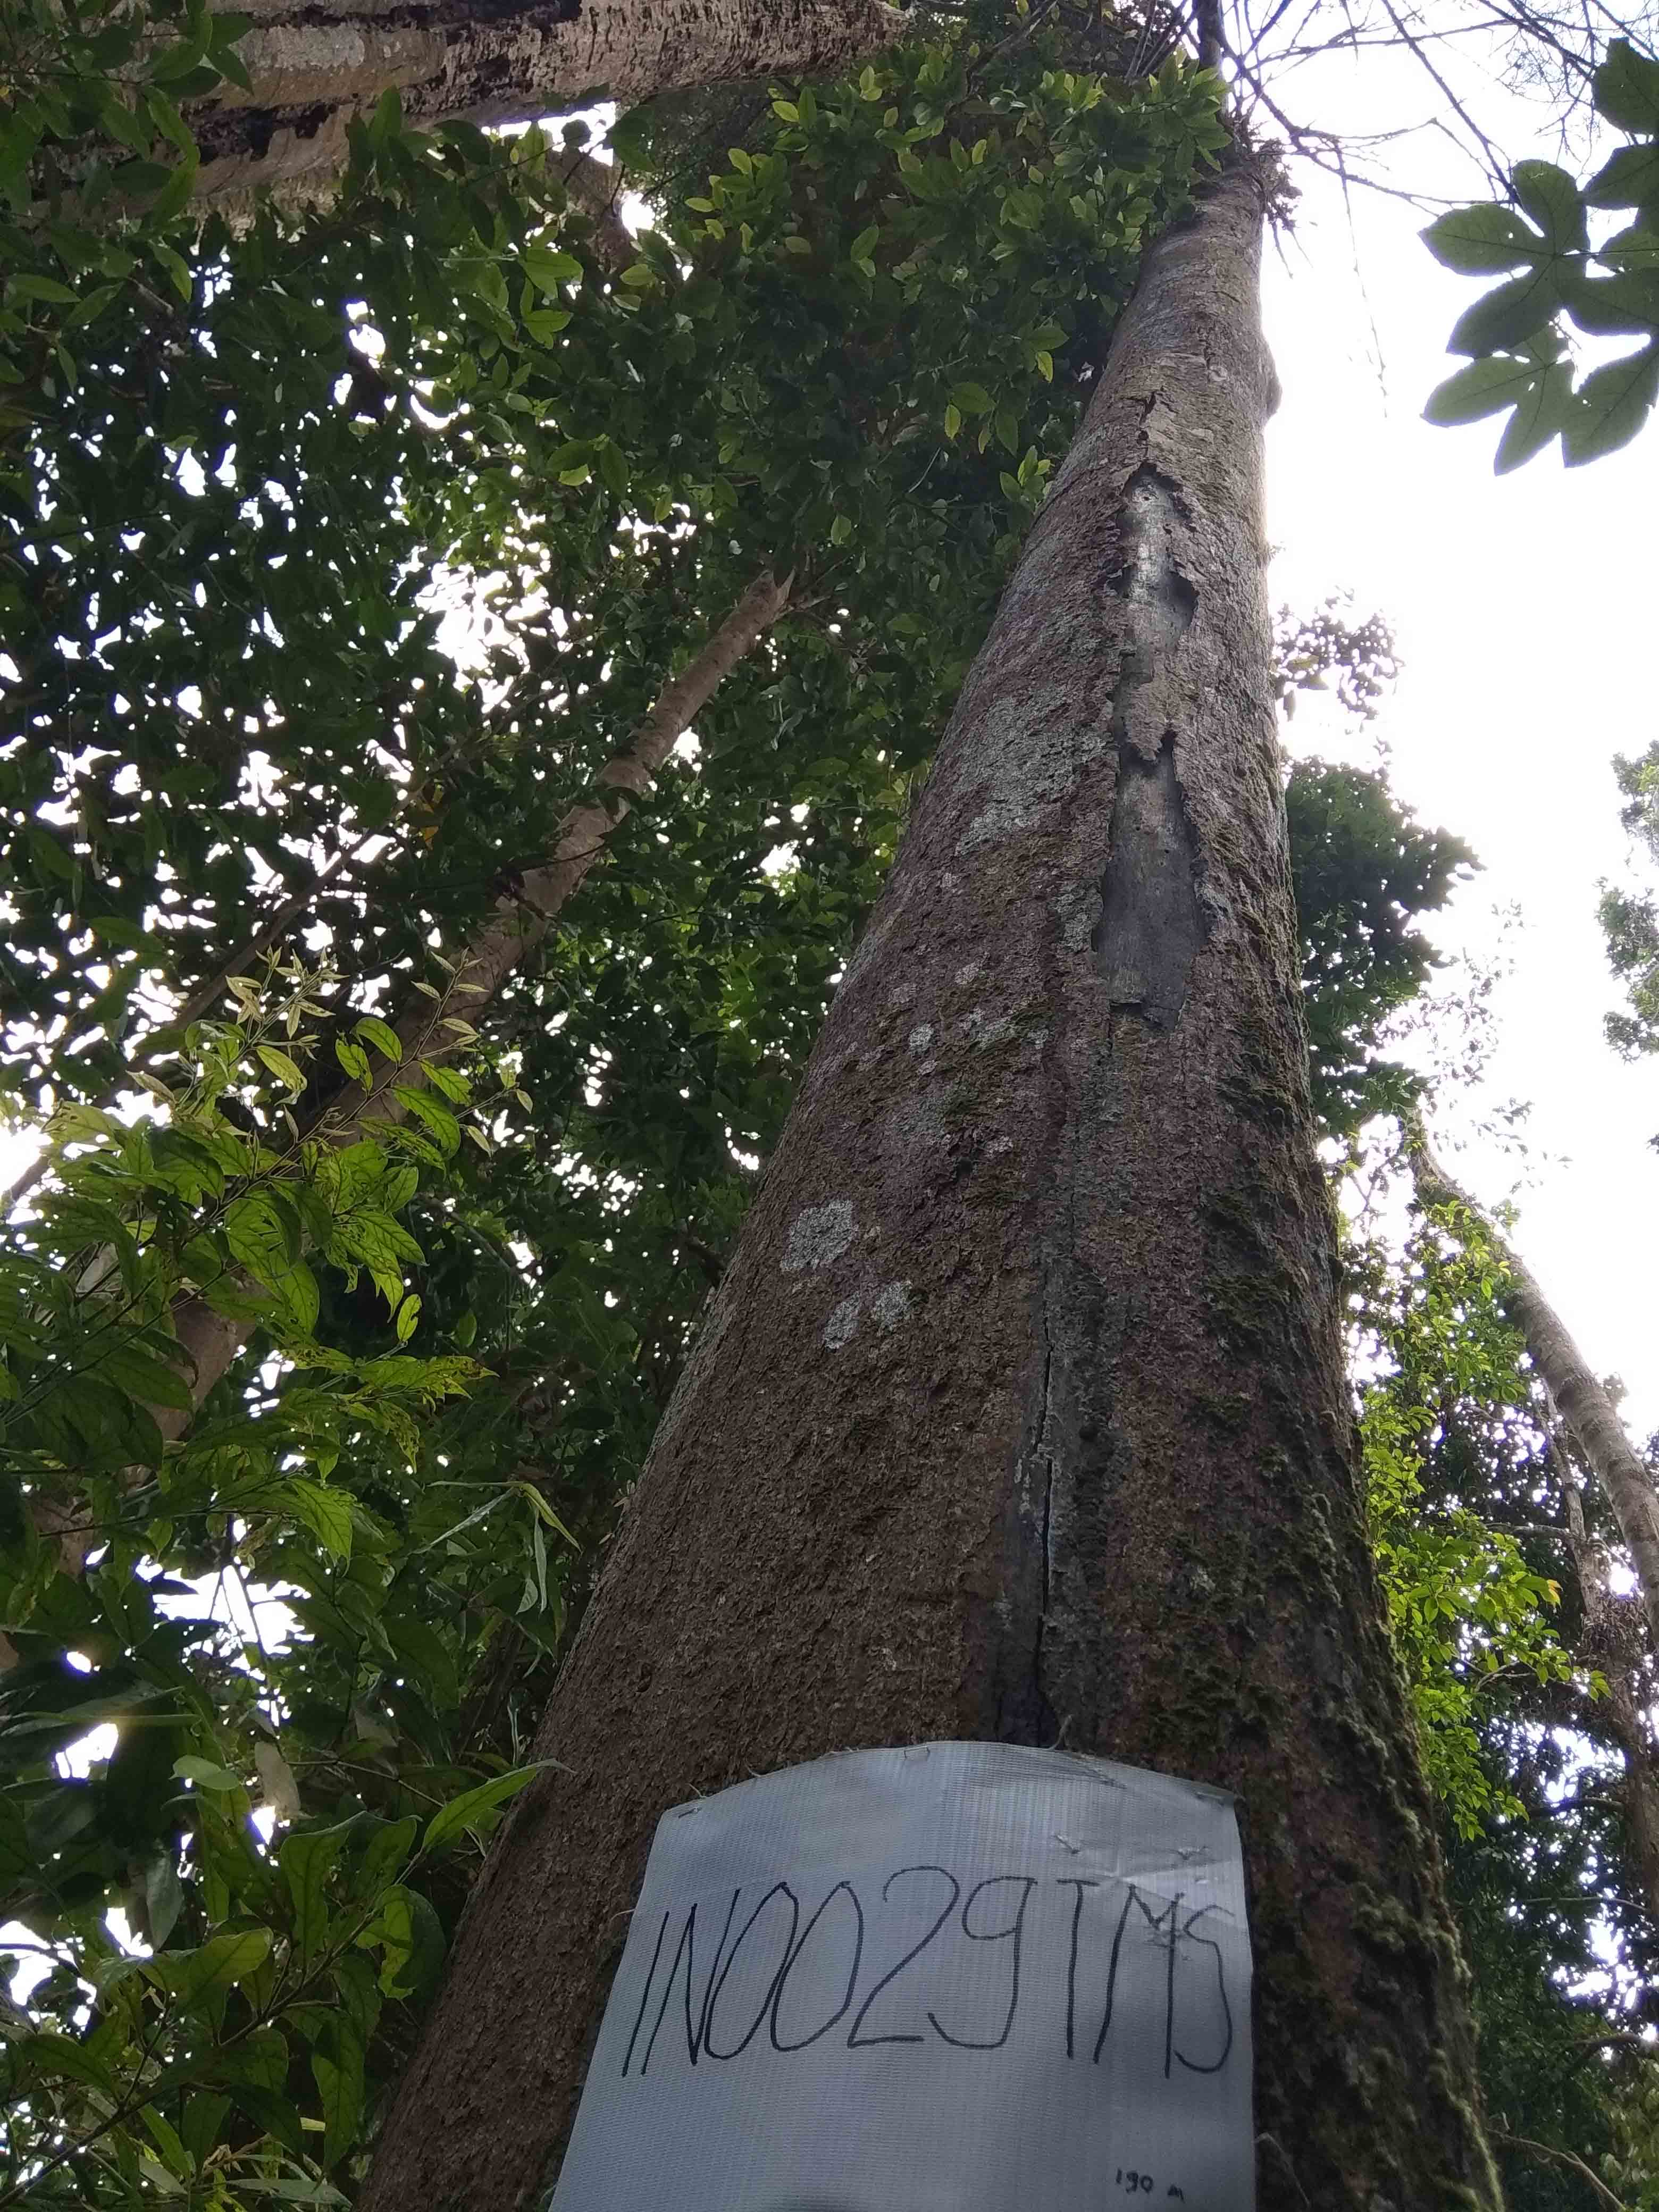 IN0029TMS
190 m